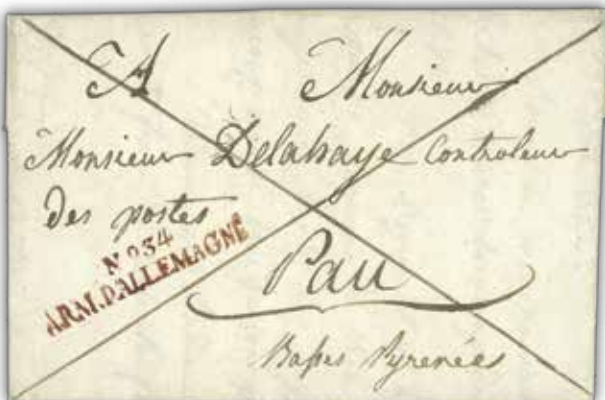 A Monsieur
Monsieur Delahaye Controleur
des postes
N°34
ARM.D'ALLEMAGNE
Pau
Basses Pyrenées